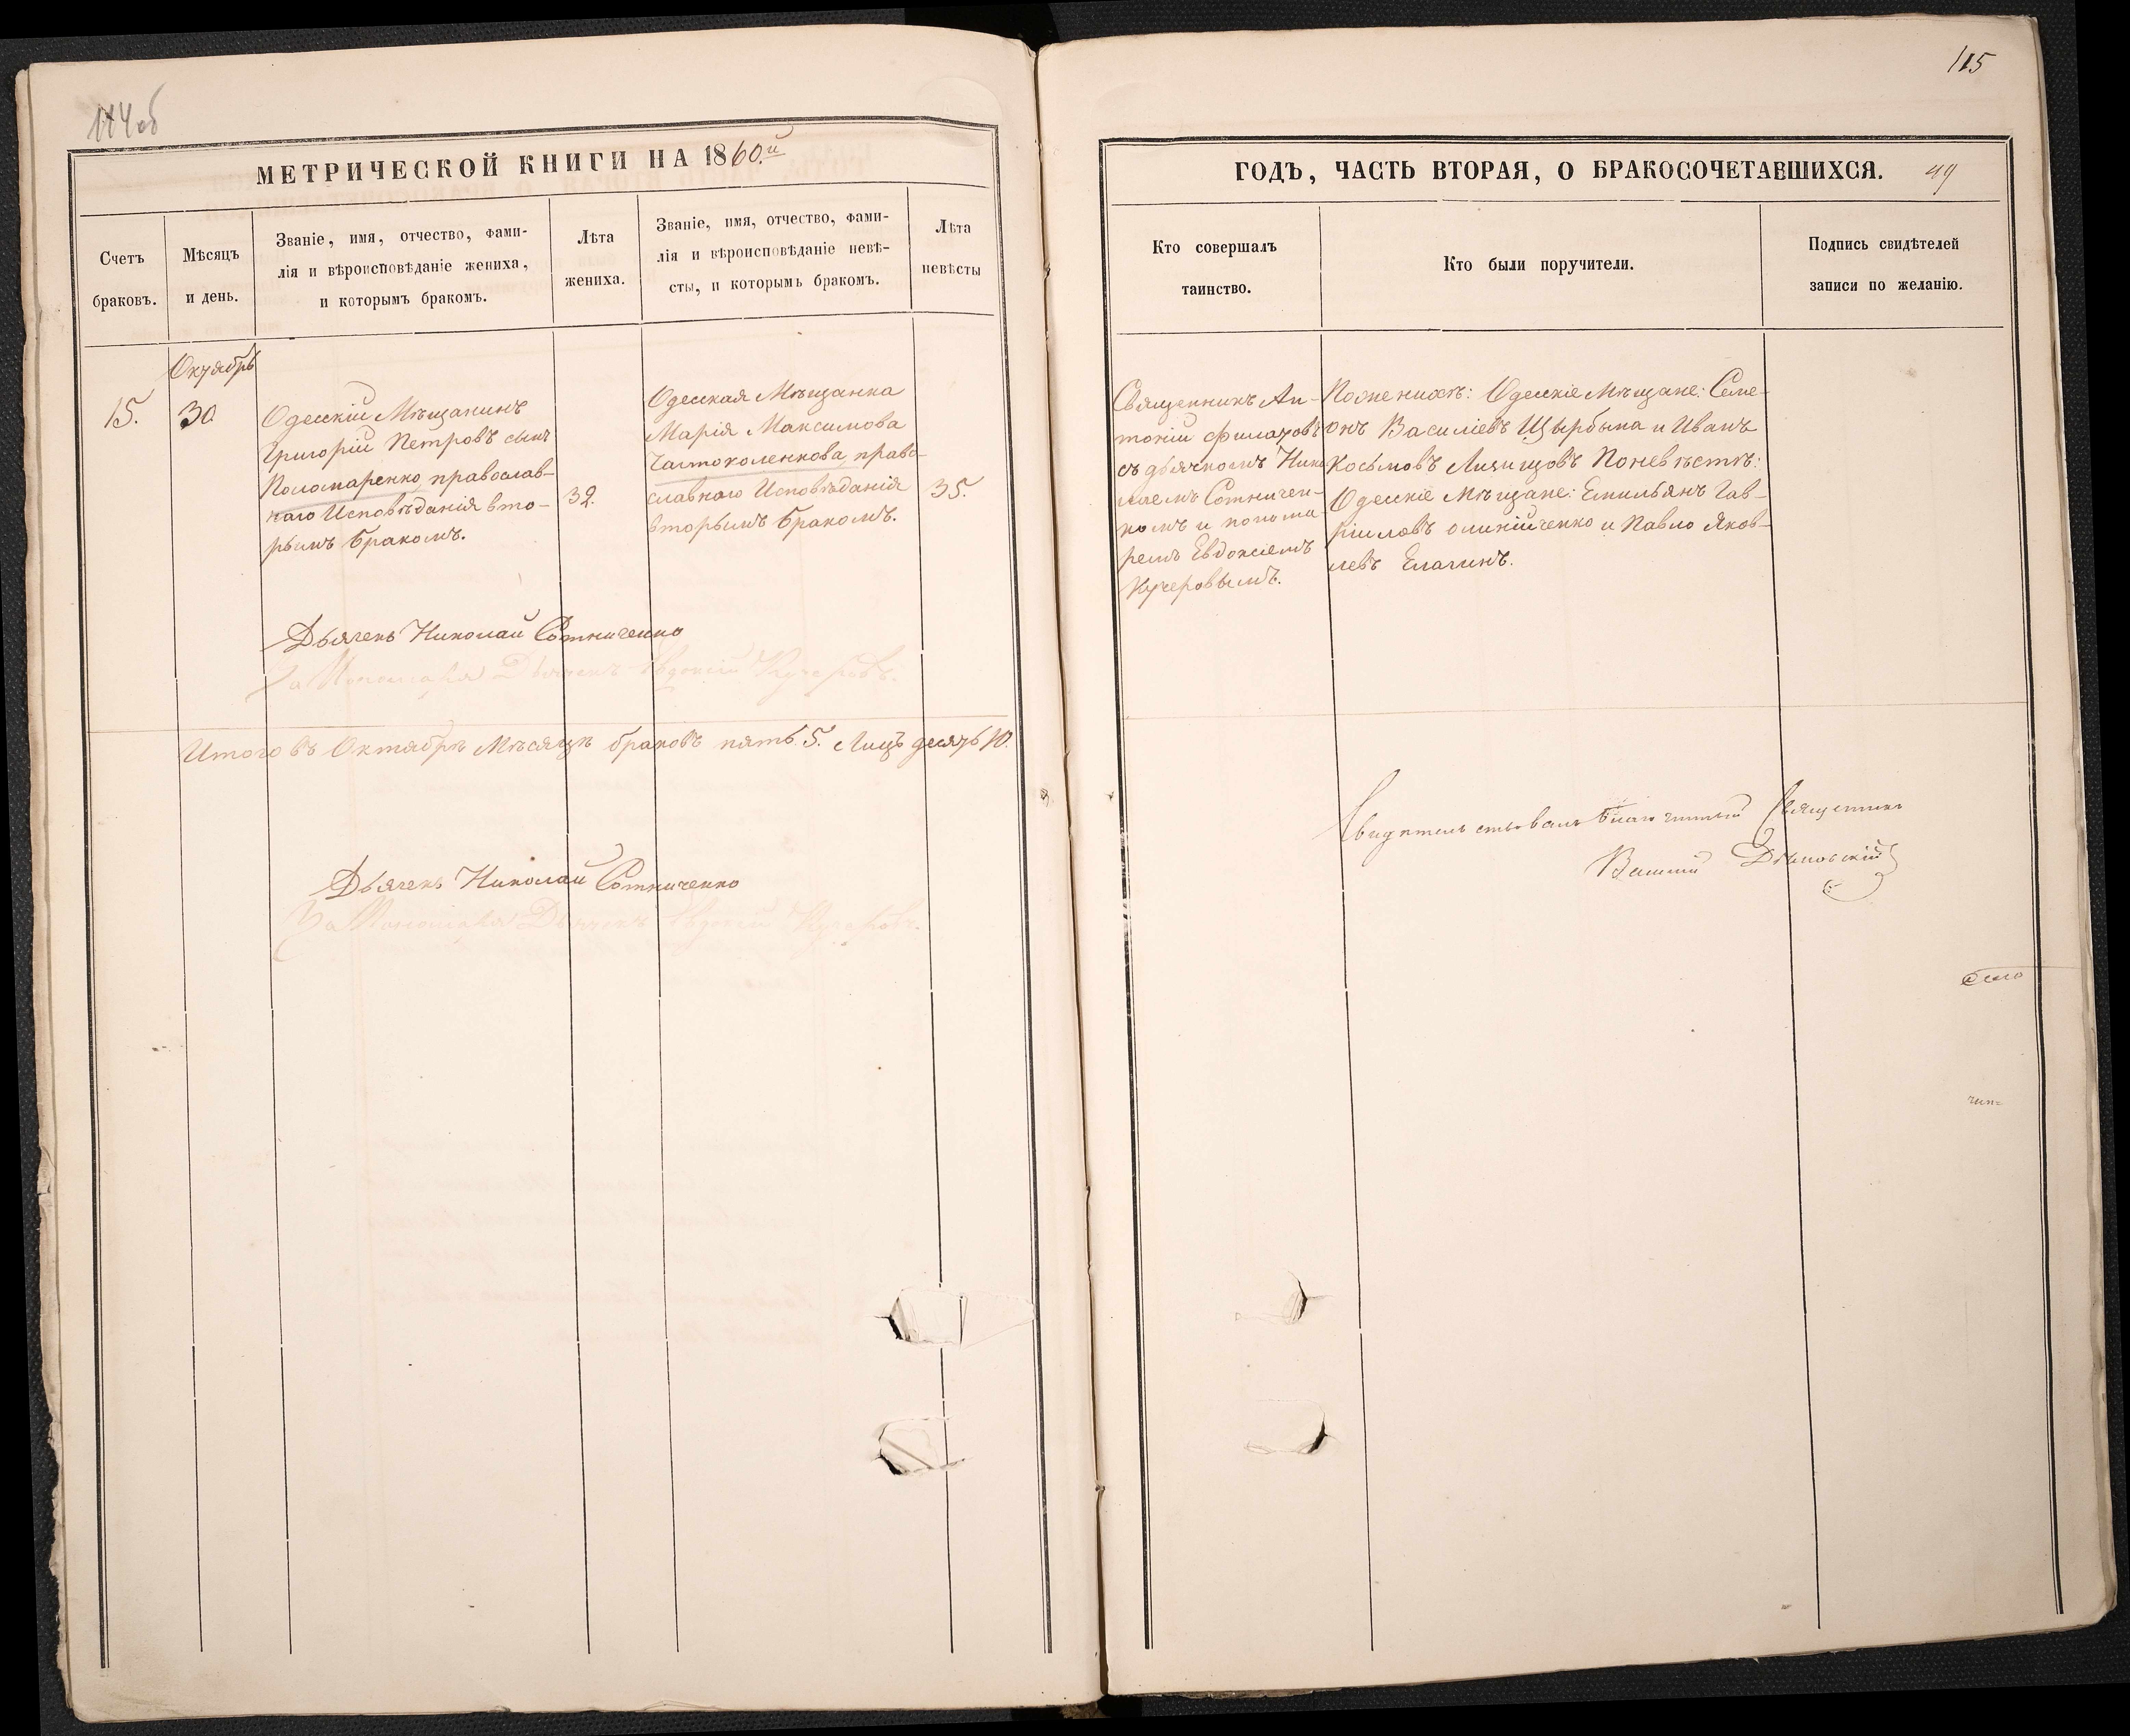 114об
МЕТРИЧЕСКОЙ КНИГИ НА 1860.й
Счетъ
браковъ.
Мѣсяцъ
и день.
Званіе, имя, отчество, фами-
лія и вѣроисповѣданіе жениха,
и которымъ бракомъ.
Лѣта
жениха.
Званіе, имя, отчество, фами-
лія и вѣроисповѣданіе невѣ-
сты, и которымъ бракомъ.
Лѣта
невѣсты
Октябрь
15.
30
Одесскій Мѣщанинъ
Григорій Петровъ сынъ
Пономаренко, православ-
наго Исповѣданія вто-
рымъ бракомъ.
39.
Одесская Мѣщанка
Марія Максимова
Частоколенкова, право-
славнаго Исповѣданія
вторымъ бракомъ.
35.
Дьячекъ Николай Сотниченко
За Пономаря Дьячекъ Евдокій Кучеровъ.
Итого въ Октябрѣ Мѣсяцѣ браковъ пять 5. Лицъ десять 10.
Дьячекъ Николай Сотниченко
За Пономаря Дьячекъ Евдокій Кучеровъ.
115
ГОДЪ, ЧАСТЬ ВТОРАЯ, О БРАКОСОЧЕТАВШИХСЯ.
49
Кто совершалъ
таинство.
Кто были поручители.
Подпись свидѣтелей
записи по желанію.
Священникъ Ан-
тоній Филатовъ
съ дьячкомъ Нико
лаемъ Сотничен-
комъ и понома
ремъ Евдокіемъ
Кучеровымъ.
По женихѣ: Одесскіе Мѣщане: Симе-
онъ Василіевъ Щырбына и Иванъ
Косьмовъ По невѣстѣ:
Одесскіе Мѣщане: Емильянъ Гав-
риловъ Олинійченко и Павло Яков-
левъ Елагинъ.
Свидѣтельствовалъ Благочинный Священникъ